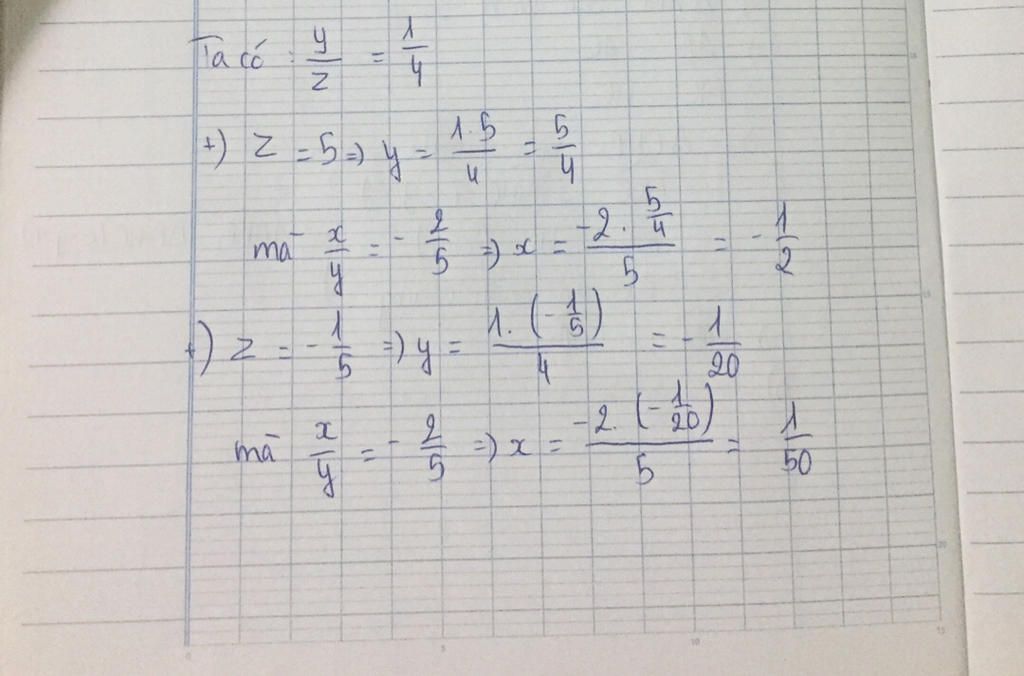 Ta có : y/z = 1/4
+) z = 5 => y = (1.5)/4 = 5/4
mà x/y = - 2/5 => x = (-2 . 5/4)/5 = - 1/2
+) z = - 1/5 => y = (1. (- 1/5))/4 = - 1/20
mà x/y = - 2/5 => x = (-2. (- 1/20))/5 = 1/50